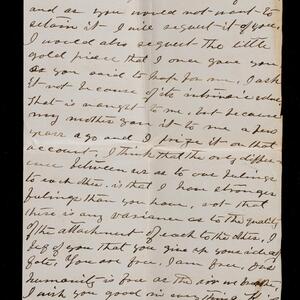 and as you would not want to
retain it I will request it of you,
I would also request the little
gold piece that I once gave you
as you said to keep for me, I ask
it not because of its intrinsic value
that is naught to me, but because
my mother gave it to me a few
years ago and I prize it on that
account, I think that the only differ-
ence between us as to our feelings
to each other is that I have stronger
feelings than you have, not that
there is any variance as to the quality
of the attachment of each to the other, I
beg of you that you give up your idea of
fate, You are free, I am free, for
humanity is free as the air we breathe,
I wish you good in every